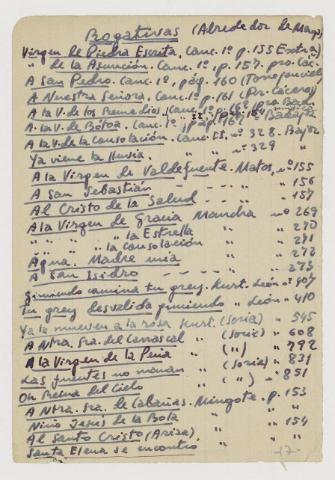 Rogativas (Alrededor de Mayo)
Virgen de Piedra Escrita. Canc. 1º p. 155 Extra)
" de la Asunción. Canc. 1º. p. 157. pro. Các.
A San Pedro. Canc. 1º, pág. 160
A Nuestra Señora. Canc. 1º p. 161 (Pro. Cáceres)
A la V. de los Remedios, (Canc. 1º p. 162 pro Bad.
A la V. de Bótoa. Canc. 1º p. 164 Badajoz
A la V. de la Consolación. Canc. nº 328. Bajoz
Ya viene la lluvia. " " nº 329 "
A la Virgen de Valdefuente. Matos, nº 155
A San Sebastián " 156
Al Cristo de la Salud " 157
A la Virgen de Gracia Mancha nº 269
" " " " la Estrella " 270
" " " la Consolación " 271
Agua, Madre mía " 272
A San Isidro " 273
Gimiendo camina tu grey. Kurt. León nº 407
Tu grey desvalida gimiendo " León " 410
Ya la mueven a la rosa Kurt. (Soria) " 545
A Ntra. Sra. del Carrascal " (Soria) " 608
A la Virgen de la Peña " (") " 792
Las fuentes no manan " (Soria) " 831
Oh Reina del Cielo " (") " 851
A Ntra. Sra. de Cabañas. Mingote. p. 153
Niño Jesús de la Bola " "
Al Santo Cristo (Ariza). " " 154
Santa Elena se encontró " "